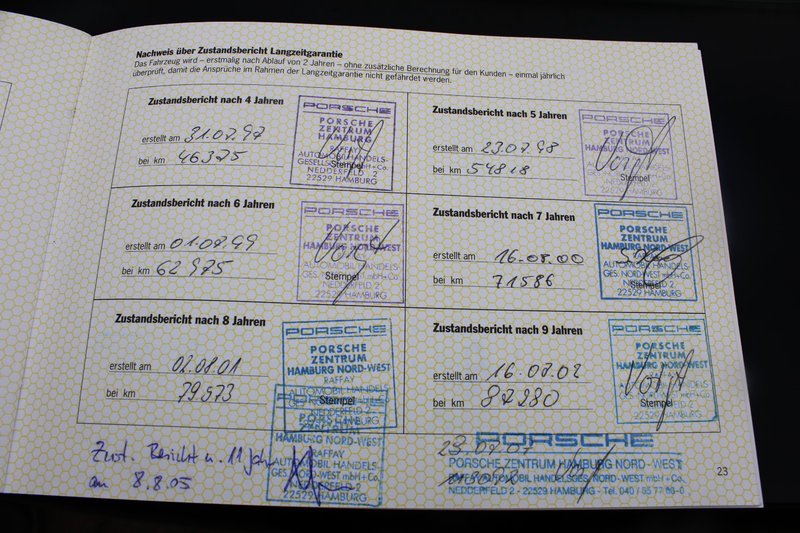 Nachweis über Zustandsbericht Langzeitgarantie
Das Fahrzeug wird – erstmalig nach Ablauf von 2 Jahren – ohne zusätzliche Berechnung für den Kunden – einmal jährlich
überprüft, damit die Ansprüche im Rahmen der Langzeitgarantie nicht gefährdet werden.
Zustandsbericht nach 4 Jahren
erstellt am 31.07.97
bei km 46375
PORSCHE
PORSCHE
ZENTRUM
HAMBURG
RAFFAY
AUTOMOBIL HANDELS-
GESELLSCHAFT mbH+Co.
Stempel
NEDDERFELD 2
22529 HAMBURG
Zustandsbericht nach 5 Jahren
erstellt am 23.07.98
bei km 54818
PORSCHE
PORSCHE
ZENTRUM
HAMBURG NORD-WEST
Stempel
22529 HAMBURG
Zustandsbericht nach 6 Jahren
erstellt am 01.07.99
bei km 62975
PORSCHE
PORSCHE
ZENTRUM
HAMBURG NORD-WEST
AUTOMOBIL HANDELS-
GES. NORD-WEST mbH+Co.
Stempel
NEDDERFELD 2
22529 HAMBURG
Zustandsbericht nach 7 Jahren
erstellt am 16.08.00
bei km 71586
PORSCHE
PORSCHE
ZENTRUM
HAMBURG NORD-WEST
AUTOMOBIL HANDELS-
GES. NORD-WEST mbH+Co.
Stempel
22529 HAMBURG
Zustandsbericht nach 8 Jahren
erstellt am 02.08.01
bei km 79573
PORSCHE
PORSCHE
ZENTRUM
HAMBURG NORD-WEST
RAFFAY
AUTOMOBIL HANDELS-
Stempel
NEDDERFELD 2
Zustandsbericht nach 9 Jahren
erstellt am 16.07.02
bei km 87280
PORSCHE
PORSCHE
ZENTRUM
HAMBURG NORD-WEST
Stempel
22529 HAMBURG
Zust. Bericht n. 11 Jahr
am 8.8.05
HAMBURG NORD-WEST
RAFFAY
AUTOMOBIL HANDELS-
GES. NORD-WEST mbH+Co.
NEDDERFELD 2
22529 HAMBURG
23.07.07
PORSCHE
PORSCHE ZENTRUM HAMBURG NORD - WEST
AUTOMOBIL HANDELSGES. NORD-WEST mbH + Co.
NEDDERFELD 2 - 22529 HAMBURG - Tel. 040 / 55 77 68-0
23